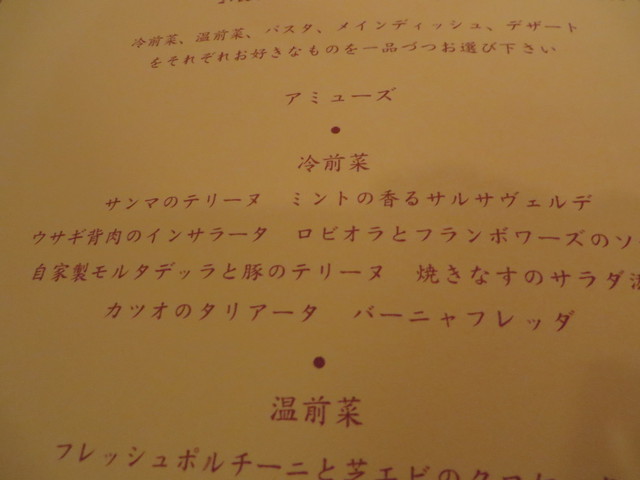 冷前菜、温前菜、パスタ、メインディッシュ、デザート
をそれぞれお好きなものを一品づつお選び下さい
アミューズ
●
冷前菜
サンマのテリーヌ　ミントの香るサルサヴェルデ
ウサギ背肉のインサラータ　ロビオラとフランボワーズのソ
自家製モルタデッラと豚のテリーヌ　焼きなすのサラダ
カツオのタリアータ　バーニャフレッダ
●
温前菜
フレッシュポルチーニと芝エビの